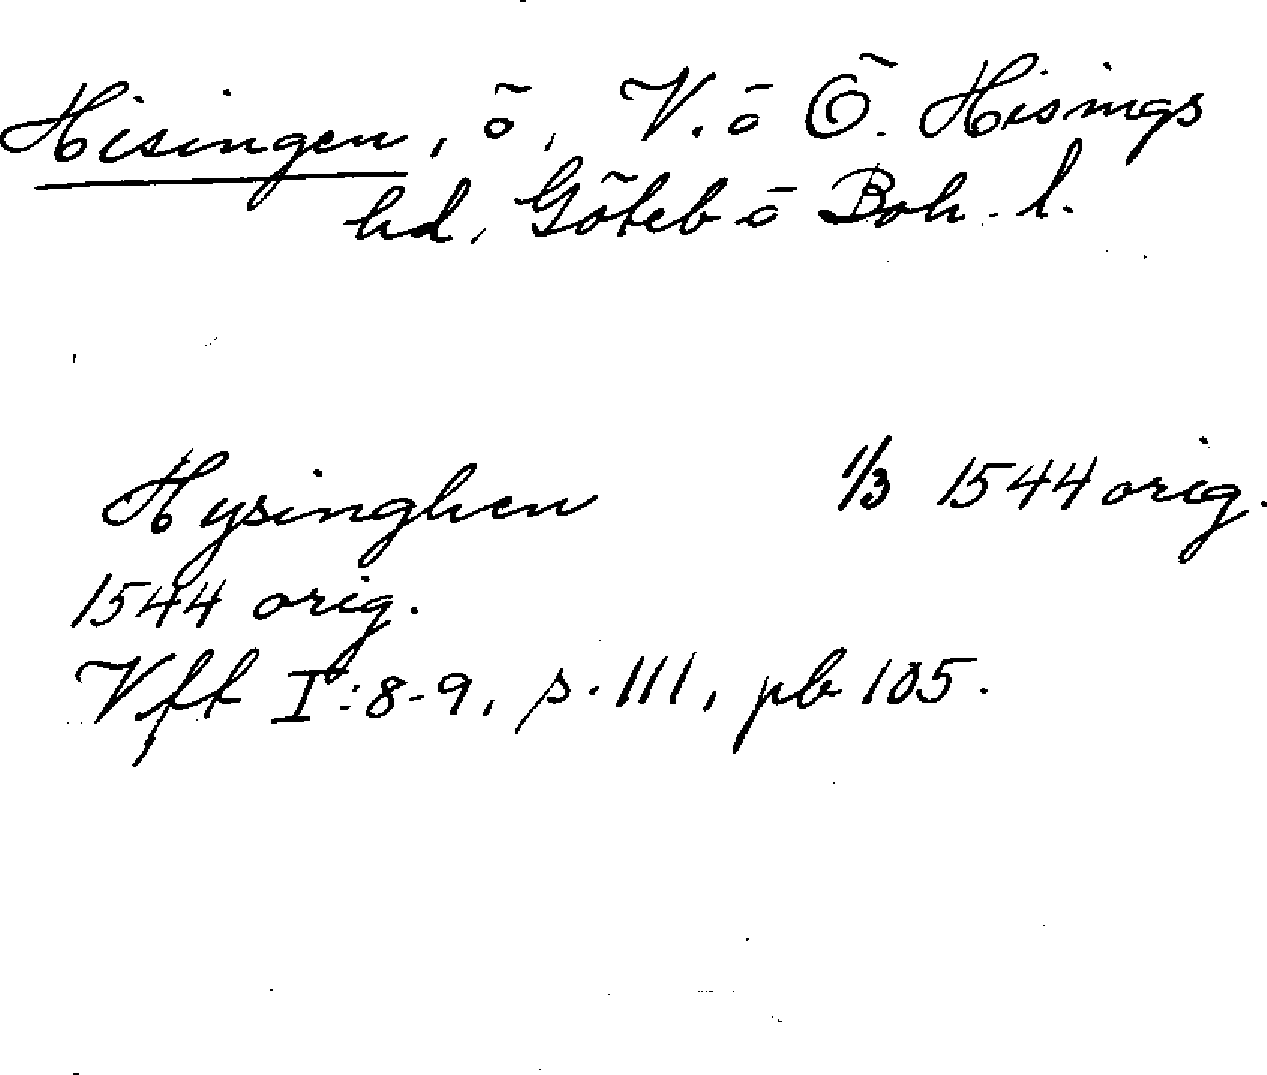 Hisingen, ö, V. o Ö. Hisings
hd, Göteb o Boh. l.
Hysinghen 1/3 1544 orig.
1544 orig.
Vff I:8-9, s. 111, pb 105.